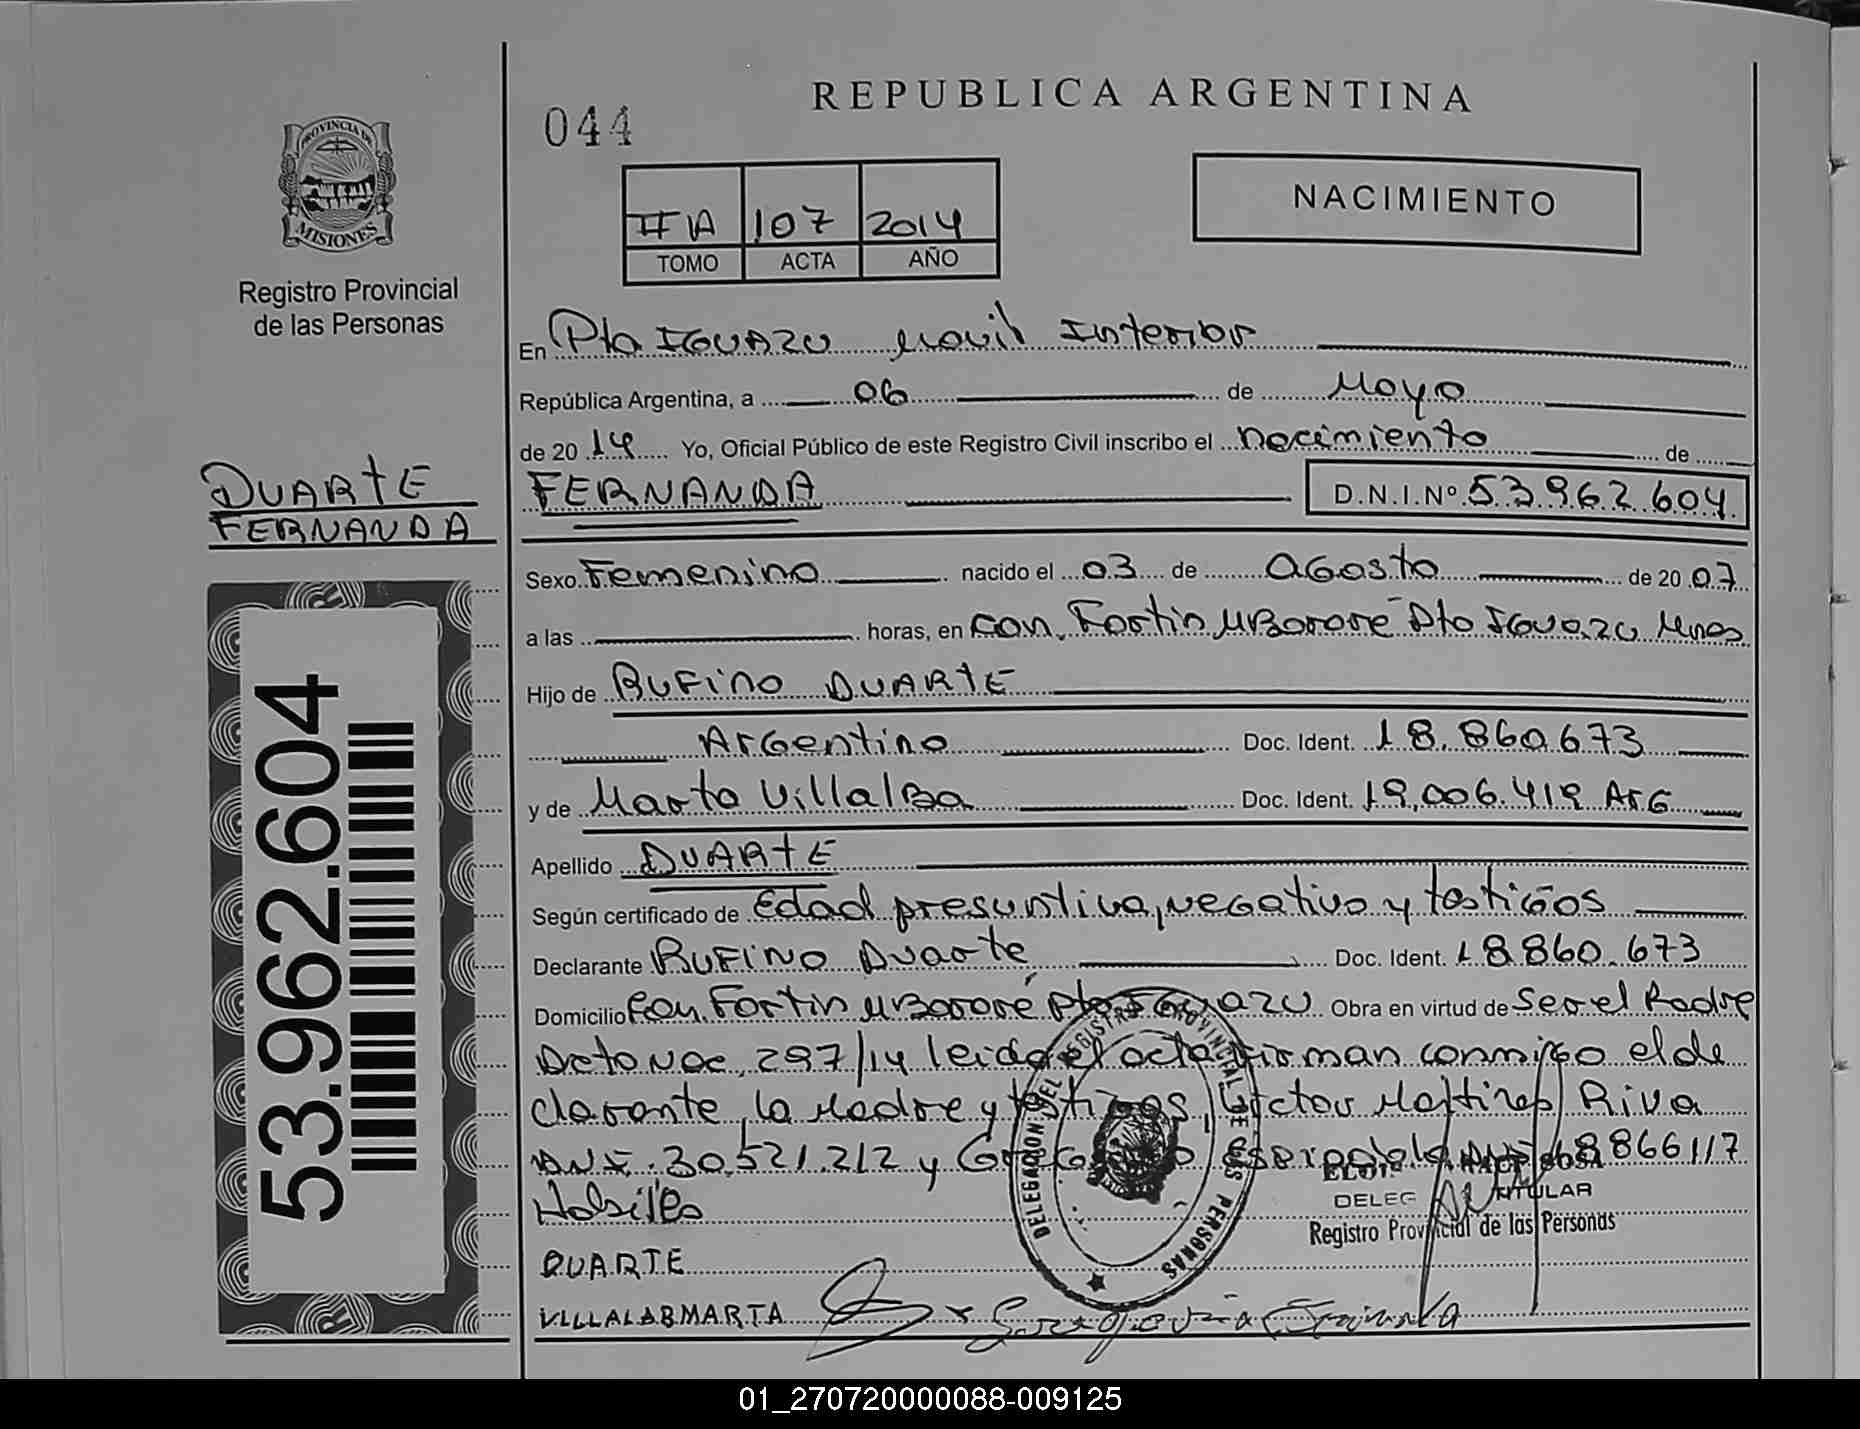 REPUBLICA ARGENTINA
044
NACIMIENTO
PROVINCIA DE
MISIONES
Registro Provincial
de las Personas
II A 107 2014
TOMO ACTA AÑO
En Pto IGUAZU Movil Interior
República Argentina, a 06 de Mayo
de 20 14 Yo, Oficial Público de este Registro Civil inscribo el nacimiento de
FERNANDA D.N.I.Nº 53.962.604
DUARTE
FERNANDA
Sexo Femenino nacido el 03 de Agosto de 20 07
a las horas, en Com. Fortin MBororé Pto Iguazu Mnes
Hijo de RUFINO DUARTE
Argentino Doc. Ident. 18.860.673
y de Marta Villalba Doc. Ident. 19.006.419 Arg
Apellido DUARTE
Según certificado de Edad presuntiva, negativo y testigos
Declarante RUFINO Duarte Doc. Ident. 18860.673
Domicilio Com. Fortin MBororé Pto Iguazu Obra en virtud de Ser el Padre
Dcto Nac. 297/14 leida el acta firman conmigo el de
clarante, la Madre y testigos, Riva
DNI. 30.521.212 y 18866117
Habiles
53.962.604
DELEGACION DEL REGISTRO PROVINCIAL DE LAS PERSONAS
TITULAR
Registro Provincial de las Personas
DUARTE
VILLALABMARTA
01_270720000088-009125